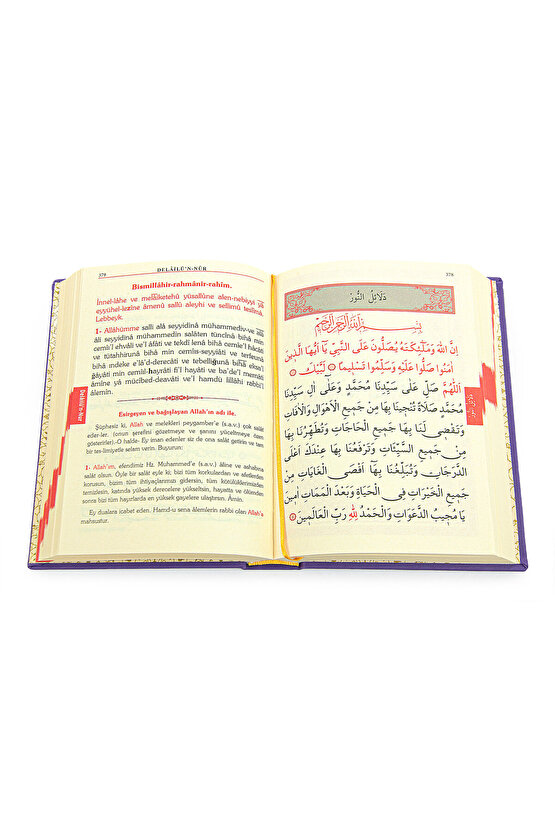 379
DELÂİLÜ'N-NÛR
Bismillâhir-rahmânir-rahîm.
İnnel-lâhe ve melâiketehü yüsallûne alen-nebiyyi yâ
eyyühel-lezîne âmenû sallû aleyhi ve sellimû teslîmâ.
Lebbeyk.
1- Allâhümme salli alâ seyyidinâ muhammediv-ve alâ
âli seyyidinâ muhammedin salâten tüncînâ bihâ min
cemîi'l ehvâli ve'l âfâti ve tekdî lenâ bihâ cemîe'l hâcâti
ve tütahhirunâ bihâ min cemîis-seyyiâti ve terfeunâ
bihâ ındeke e'lâ'd-derecâti ve tebelliğunâ bihâ eksa'l
ğâyâti min cemîil-hayrâti fi'l hayâti ve ba'de'l memâti
âmîne yâ mücîbed-deavâti ve'l hamdü lillâhi rabbi'l
âlemîn.
Esirgeyen ve bağışlayan Allah'ın adı ile.
Şüphesiz ki, Allah ve melekleri peygamber'e (s.a.v.) çok salât
ederler. (onun şerefini gözetmeye ve şanını yüceltmeye özen
gösterirler).O halde: Ey iman edenler siz de ona salât getirin ve tam
bir teslimiyetle selam verin. Buyurun:
1- Allah'ım, efendimiz Hz. Muhammed'e (s.a.v.) âline ve ashabına
salât olsun. Öyle bir salât eyle ki; bizi tüm korkulardan ve afetlerden
korusun, bizim tüm ihtiyaçlarımızı gidersin, tüm kötülüklerimizden
temizlesin, katında yüksek derecelere yükseltsin, hayatta ve ölümden
sonra bizi tüm hayırlarda en yüksek gayelere ulaştırsın. Âmin.
Ey dualara icabet eden. Hamd-u sena âlemlerin rabbi olan Allah'a
mahsustur.
Delâilü'n-Nur
378
دَلَائِلُ النُّورْ
بِسْمِ اللهِ الرَّحْمٰنِ الرَّحِيمِ
اِنَّ اللهَ وَمَلٰئِكَتَهُ يُصَلُّونَ عَلَى النَّبِيِّ يَٓا اَيُّهَا الَّذِينَ
اٰمَنُوا صَلُّوا عَلَيْهِ وَسَلِّمُوا تَسْلِيمًا لَبَّيْكَ
اَللّٰهُمَّ صَلِّ عَلٰى سَيِّدِنَا مُحَمَّدٍ وَعَلٰٓى اٰلِ سَيِّدِنَا
مُحَمَّدٍ صَلَاةً تُنْجِينَا بِهَا مِنْ جَمِيعِ الْاَهْوَالِ وَالْاٰفَاتِ
وَتَقْضِي لَنَا بِهَا جَمِيعَ الْحَاجَاتِ وَتُطَهِّرُنَا بِهَا
مِنْ جَمِيعِ السَّيِّئَاتِ وَتَرْفَعُنَا بِهَا عِنْدَكَ اَعْلَى
الدَّرَجَاتِ وَتُبَلِّغُنَا بِهَا اَقْصَى الْغَايَاتِ مِنْ
جَمِيعِ الْخَيْرَاتِ فِي الْحَيَاةِ وَبَعْدَ الْمَمَاتِ اٰمِينَ
يَا مُجِيبُ الدَّعَوَاتِ وَالْحَمْدُ لِلّٰهِ رَبِّ الْعَالَمِينَ
دَلَائِلُ النُّورْ